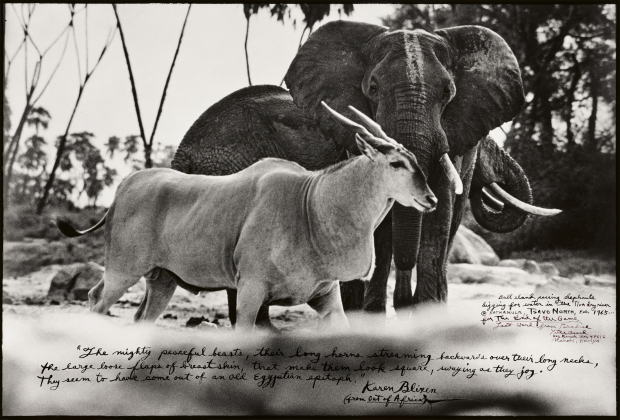 Bull eland using elephants
digging for water in the Tiva dry river
@ Kathamula, Tsavo North, Feb. 1965...
for The End of the Game
Last Word from Paradise
"The mighty peaceful beasts, their long horns streaming backwards over their long necks,
the large loose flaps of breast skin, that make them look square, swaying as they jog.
They seem to have come out of an old Egyptian epitaph,"
Karen Blixen
(from Out of Africa)